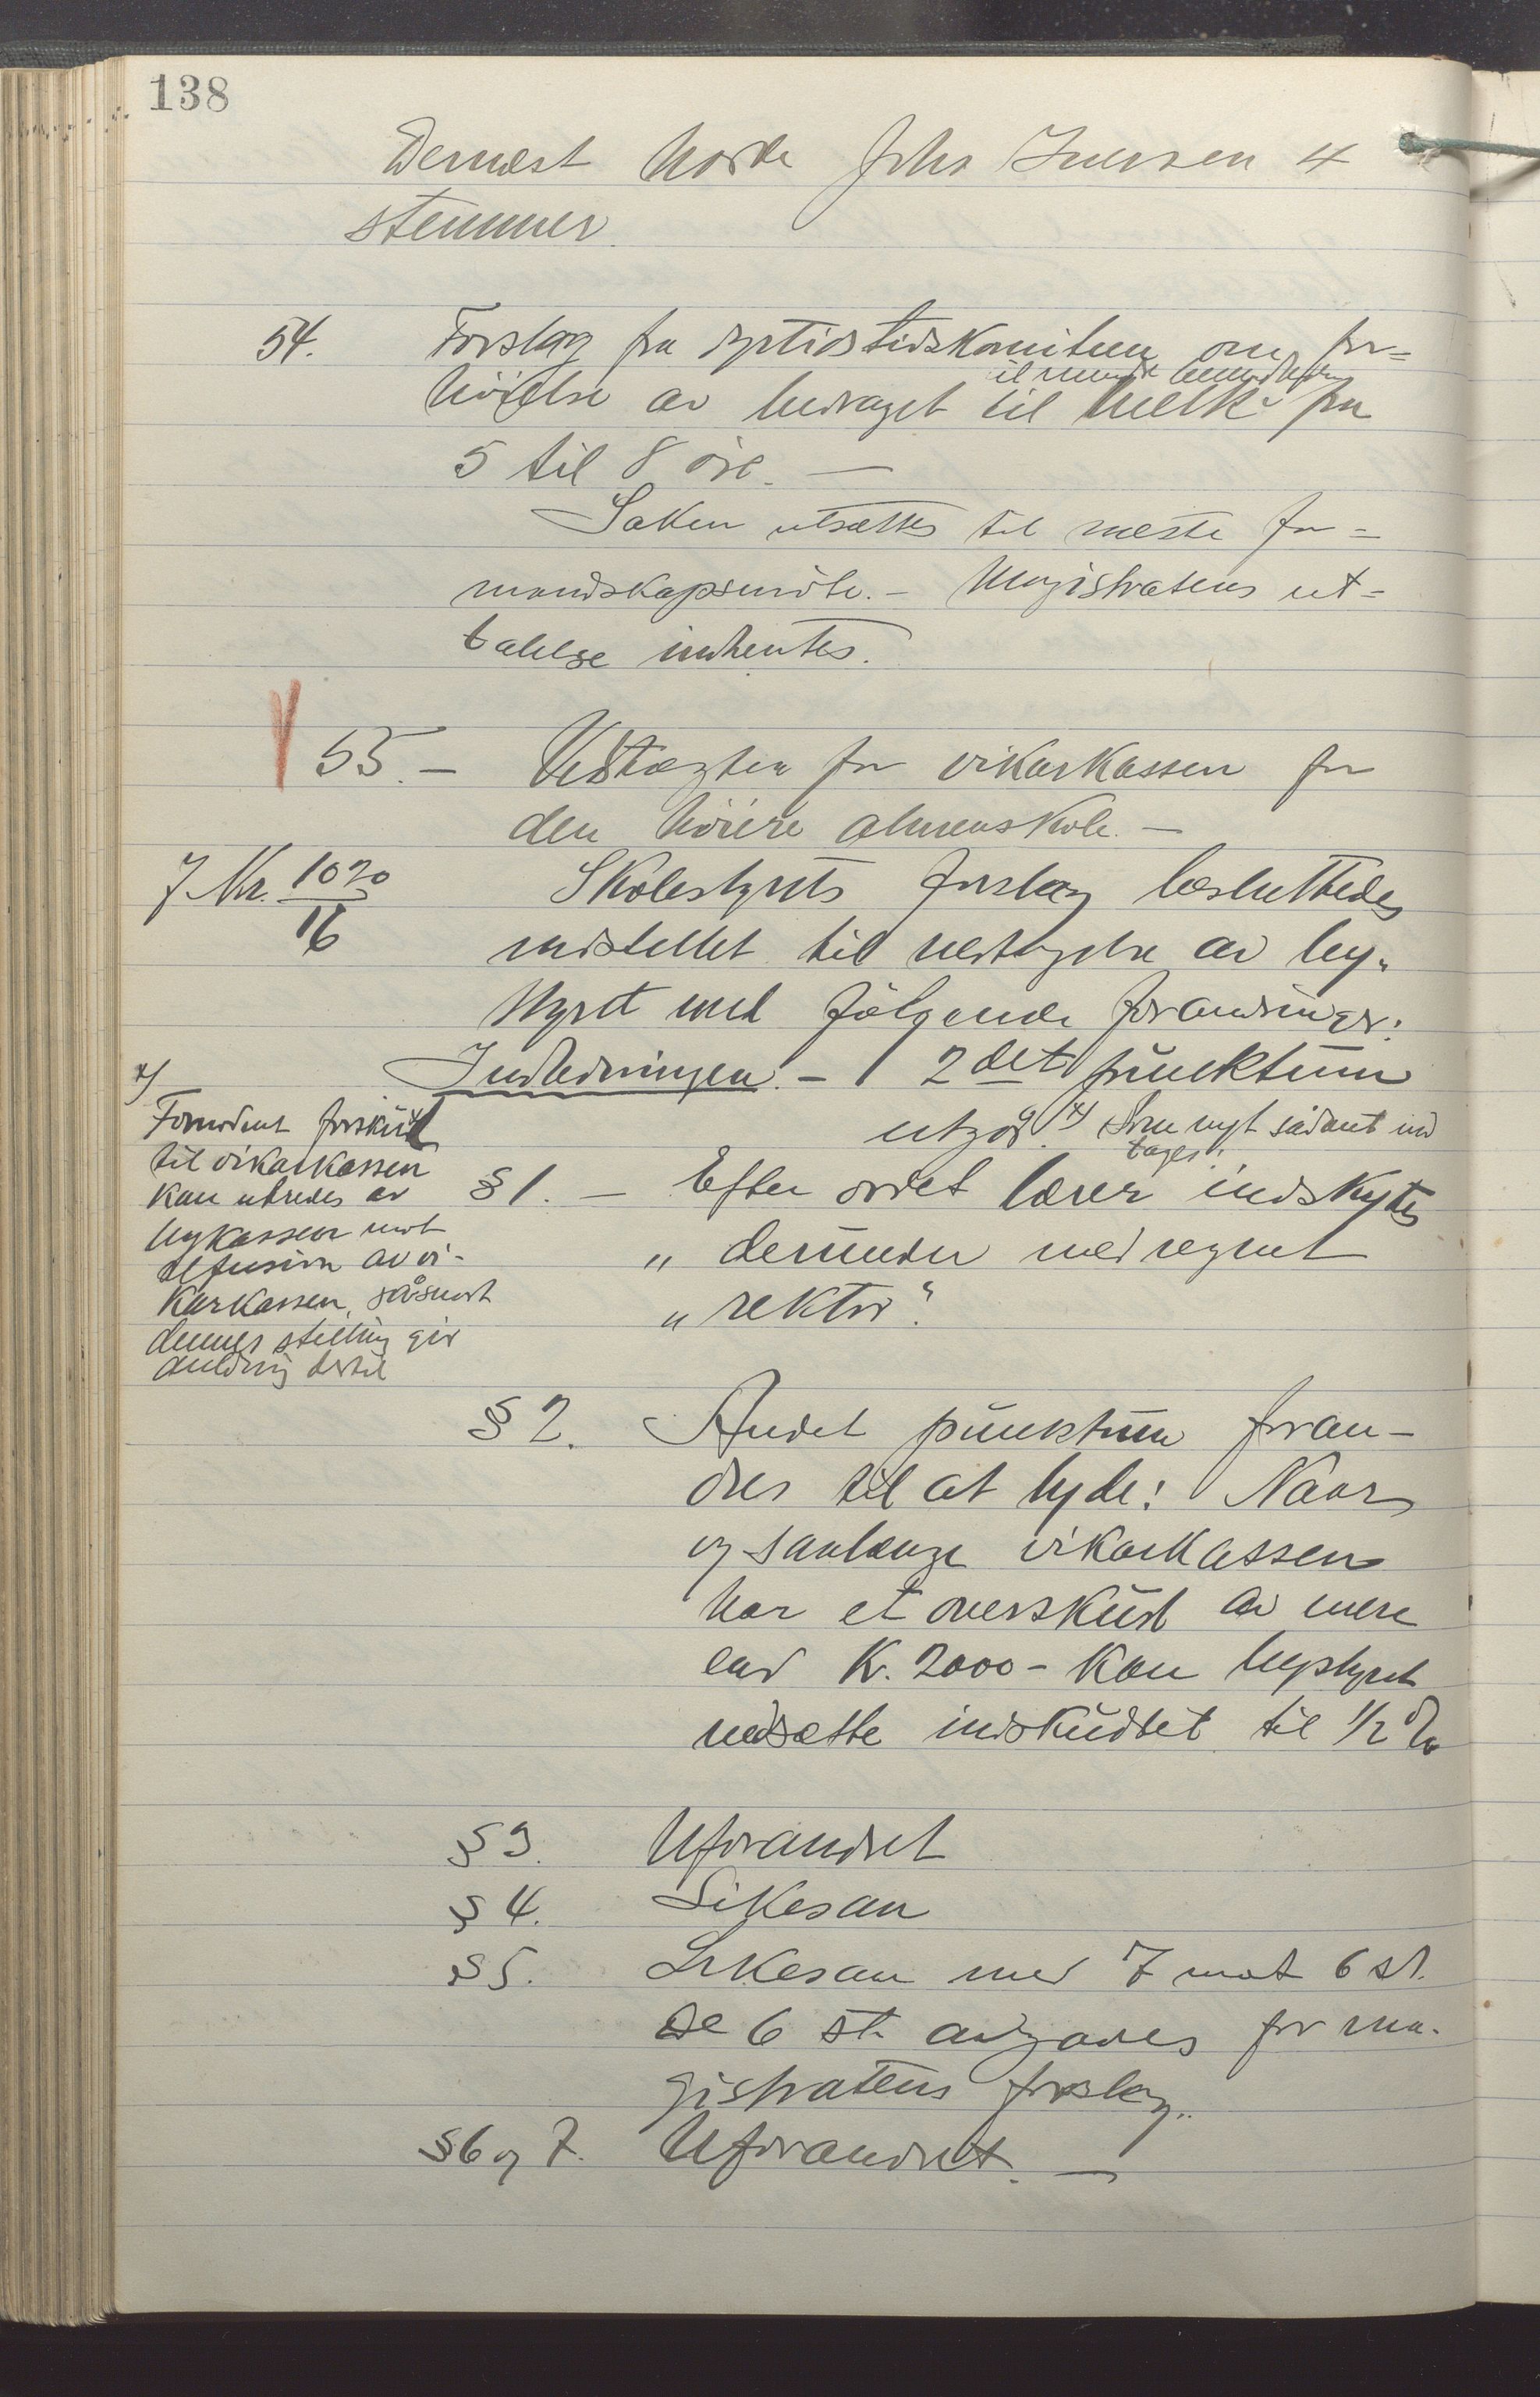 138
Dernæst havde Johs Iversen 4
stemmer.
54. Forslag fra dyrtidstidskomiteen om for=
til mindre bemidlede
høielse av bidraget til melk fra
5 til 8 øre. —
Saken utsættes til næste for=
mandskapsmöte. — Magistratens ut=
talelse indhentes.
55. — Vedtægter for vikarkassen for
den höiere almenskole. —
J Nr. 1020/16
Skolestyrets forslag besluttedes
indstillet til vedtagelse av by-
styret med følgende forandringer:
Indledningen. — 2det punktum
utgår. x) Som nyt sådant ind
tages:
x)
Fornödent forskud
til vikarkassen
kan utredes av
bykassen mot
refusion av vi-
karkassen, såsnart
dennes stilling gir
anledning dertil
§ 1. — Efter ordet lærer indskytes
„ derunder medregnet
„ rektor".
§ 2. Andet punktum foran-
dres til at lyde: Naar
og saalænge vikarkassen
har et overskud av mere
end Kr. 2000 - kan bystyret
nedsætte indskuddet til 1/2 %
§ 3. Uforandret
§ 4. Likesaa
§ 5. Likesaa med 7 mot 6 st.
De 6 st. avgaves for ma-
gistratens forslag.
§ 6 og 7. Uforandret. —